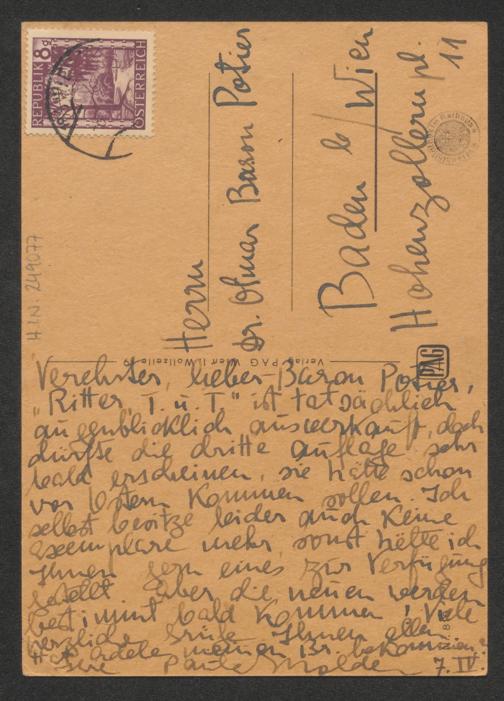 REPUBLIK 8g
ÖSTERREICH
Herrn
Dr. Otmar Baron Potier
Baden b/Wien
Hohenzollernpl.
11
H.I.N. 249077
Verlag PAG Wien II. Wollzeile 9
PAG
Verehrter, lieber Baron Potier,
"Ritter, T. u. T" ist tatsächlich
augenblicklich ausverkauft, doch
dürfte die dritte Auflage sehr
bald erscheinen, sie hätte schon
vor Ostern kommen sollen. Ich
selbst besitze leider auch keine
Exemplare mehr, sonst hätte ich
Ihnen gern eines zur Verfügung
gestellt. Aber die neuen werden
bestimmt bald kommen! Viele
herzliche Grüße Ihnen allen
Hat Adele meinen Br. bekommen?
Ihre Paula Molden 7. IV.